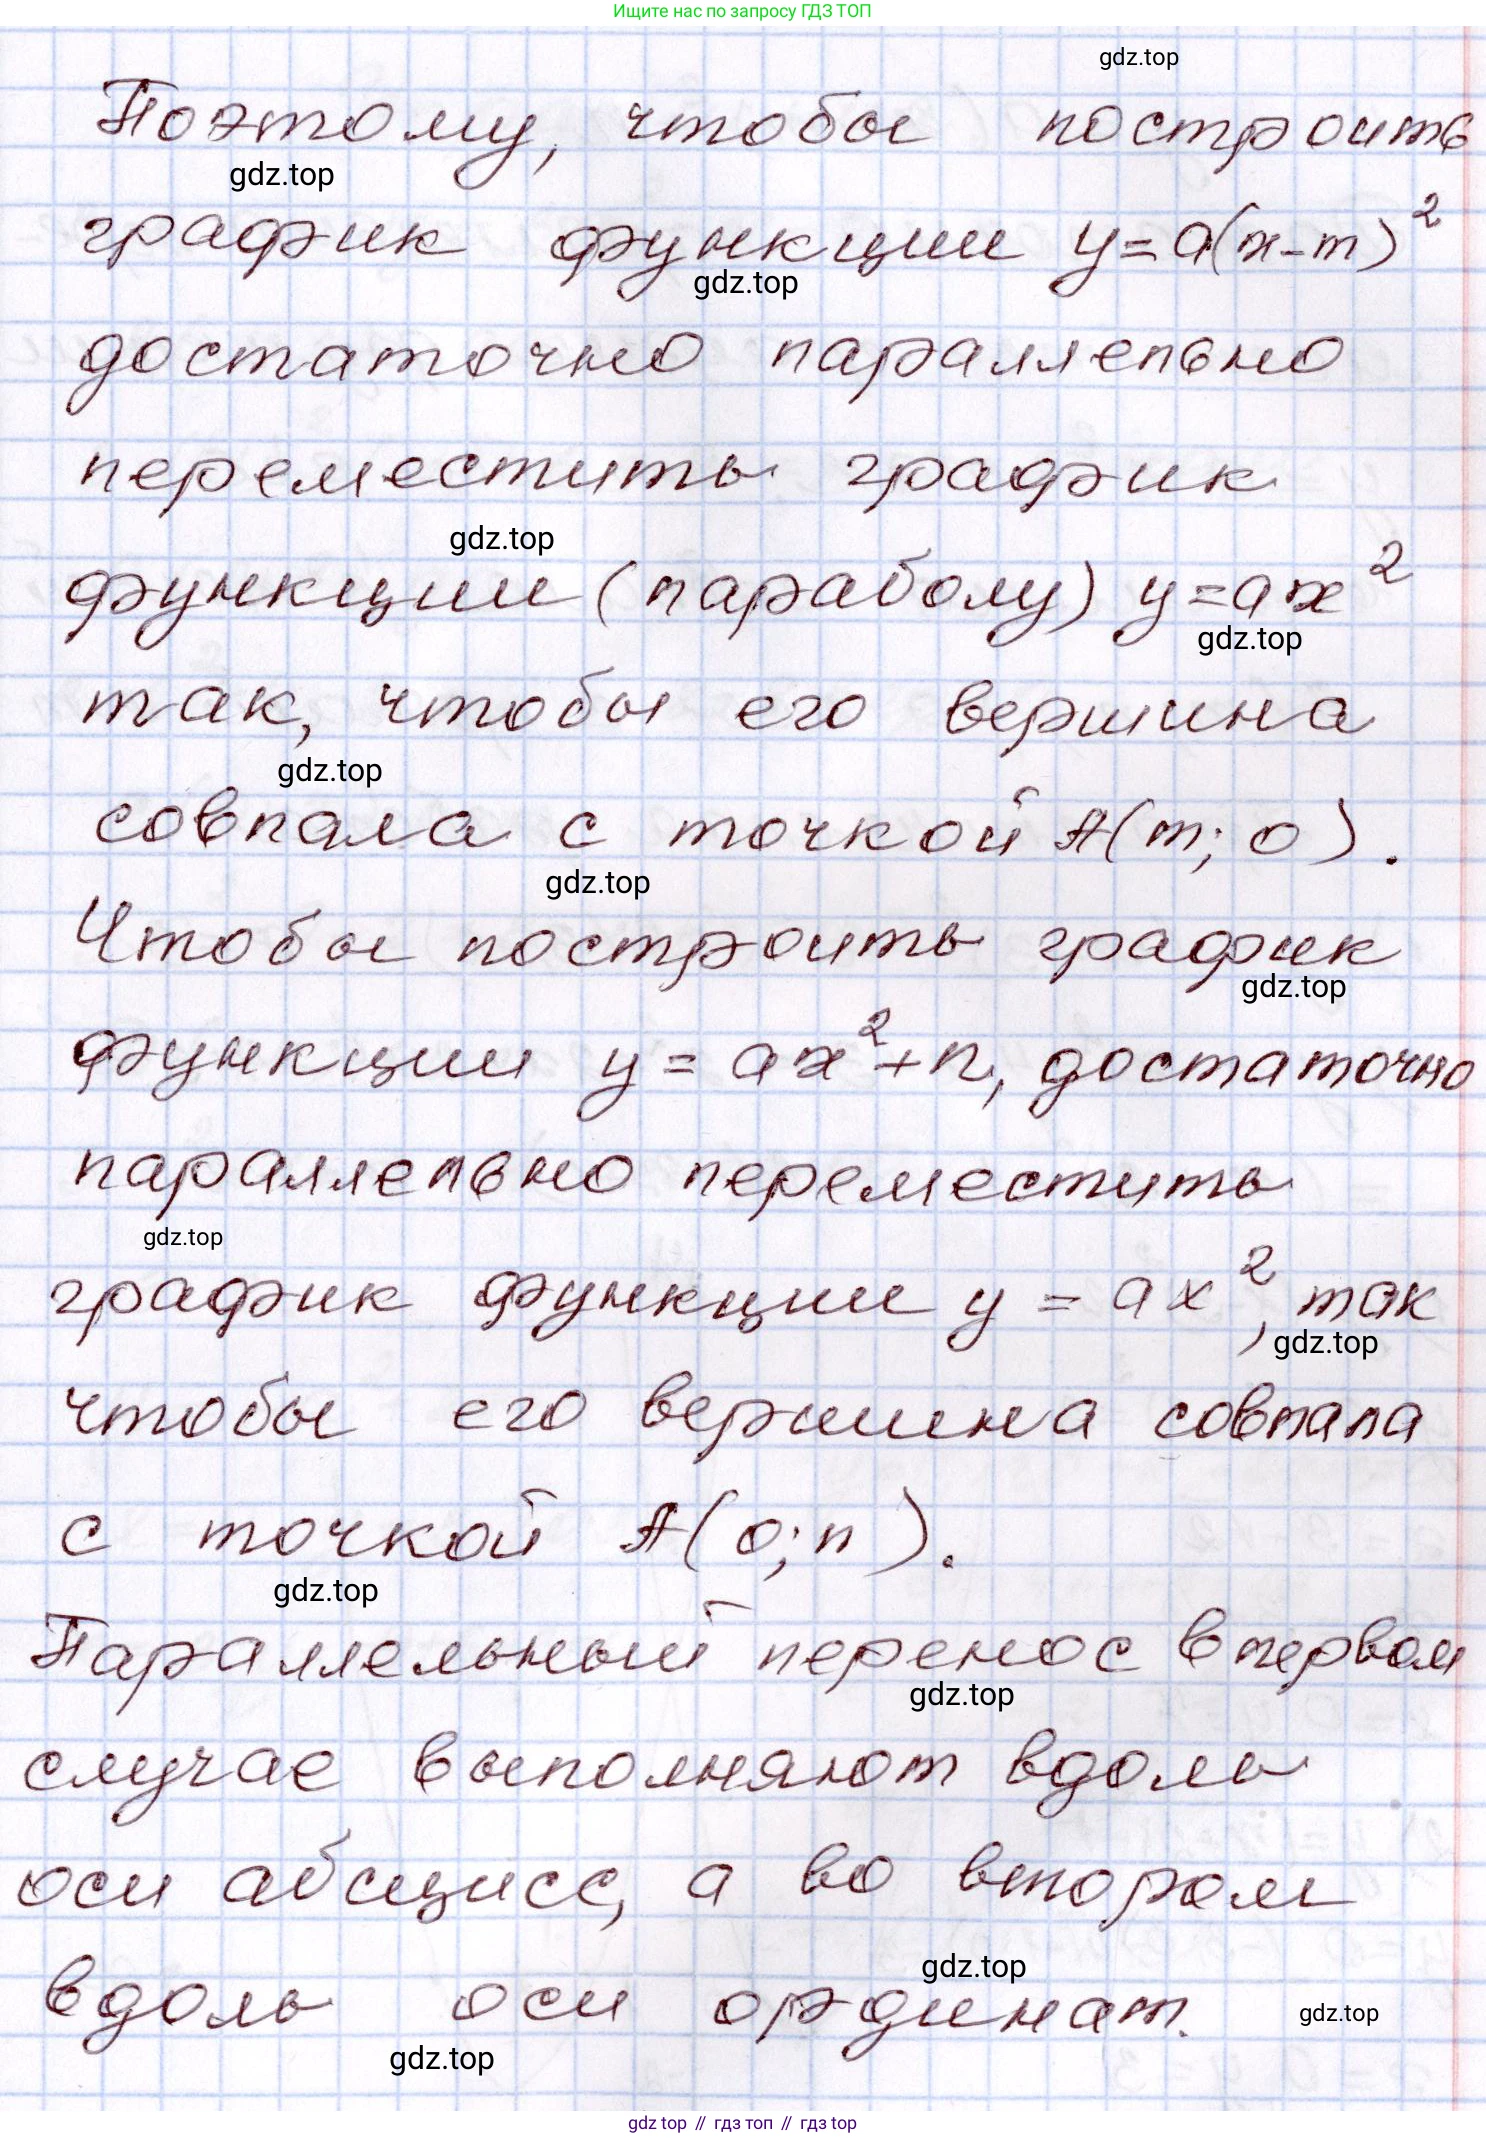 Ищите нас по запросу ГДЗ ТОП
gdz.top
Поэтому, чтобы построить
gdz.top
график функции y=a(x-m)²
gdz.top
достаточно параллельно
переместить график
gdz.top
функции (параболу) y=ax²
gdz.top
так, чтобы его вершина
gdz.top
совпала с точкой A(m; 0).
gdz.top
Чтобы построить график
gdz.top
функции y = ax²+n, достаточно
параллельно переместить
gdz.top
график функции y = ax², так
gdz.top
чтобы его вершина совпала
с точкой A(0; n).
gdz.top
Параллельный перенос в первом
gdz.top
случае выполняют вдоль
оси абсцисс, а во втором
gdz.top
вдоль оси ординат.
gdz.top
gdz.top
gdz top // гдз топ // gdz top